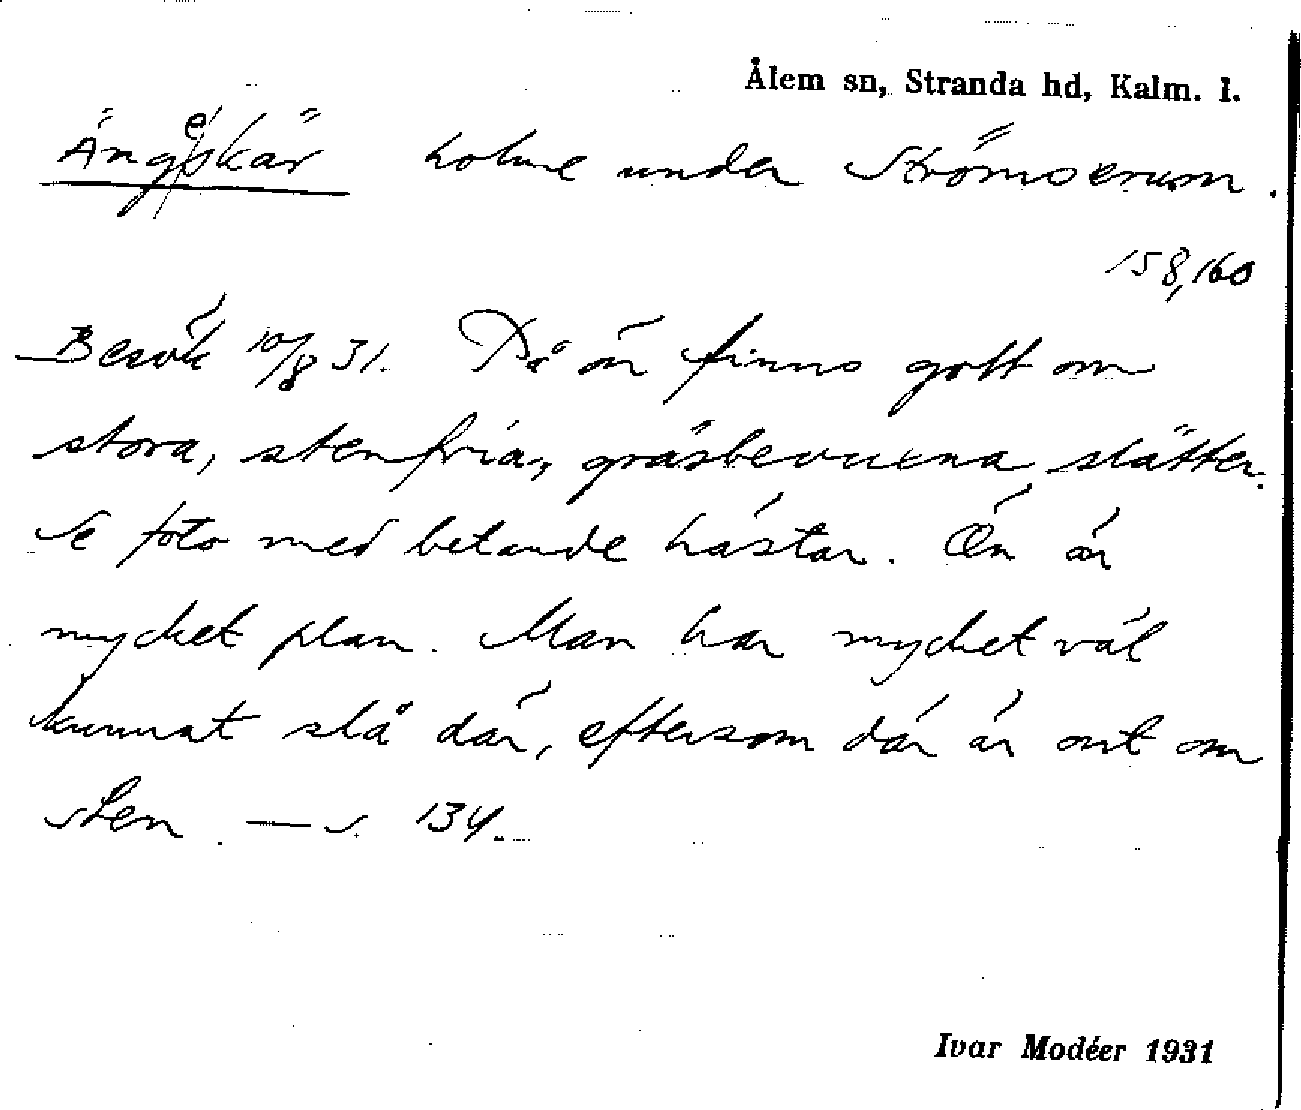 Ålem sn, Stranda hd, Kalm. l.
Ängeskär holme under Strömserum.
158,160
Besök 10/8 31. På ön finns gott om
stora, stenfria, gräsbevuxna slätter.
Se foto med betande hästar. Ön är
mycket plan. Man har mycket väl
kunnat slå där, eftersom där är ont om
sten. — s. 134.
Ivar Modéer 1931